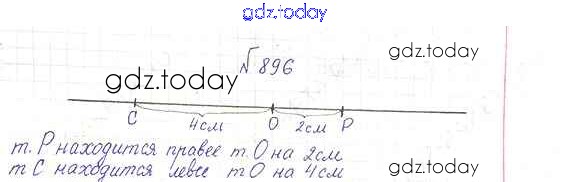 gdz.today
№ 896
gdz.today
gdz.today
C 4см O 2см P
т. P находится правее т. O на 2см
т C находится левее т O на 4см
gdz.today